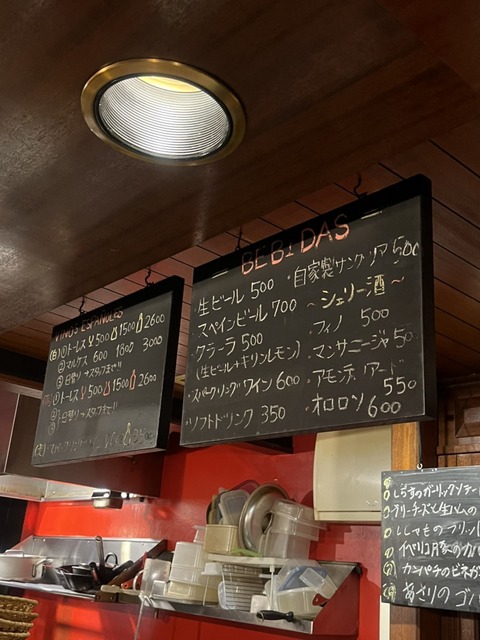 VINOS ESPAÑOLES
(白)①トーレス 500 1500 2600
②マルケス 600 1800 3000
③日替り→スタフまで!!
①トーレス 500 1500 2600
②日替り→スタフまで!!
BEBIDAS
・生ビール 500
・スペインビール 700
・クラーラ 500
(生ビール+キリンレモン)
・スパークリングワイン 600
・ソフトドリンク 350
・自家製サングリア 500
〜シェリー酒〜
・フィノ 500
・マンサニージャ 50
・アモンティリアード 550
・オロロソ 600
しらすのガーリックソテー
クリーチーズと生ハムの
ししゃものフリッ
イベリコ豚の
カンパチのビネガ
あさりの